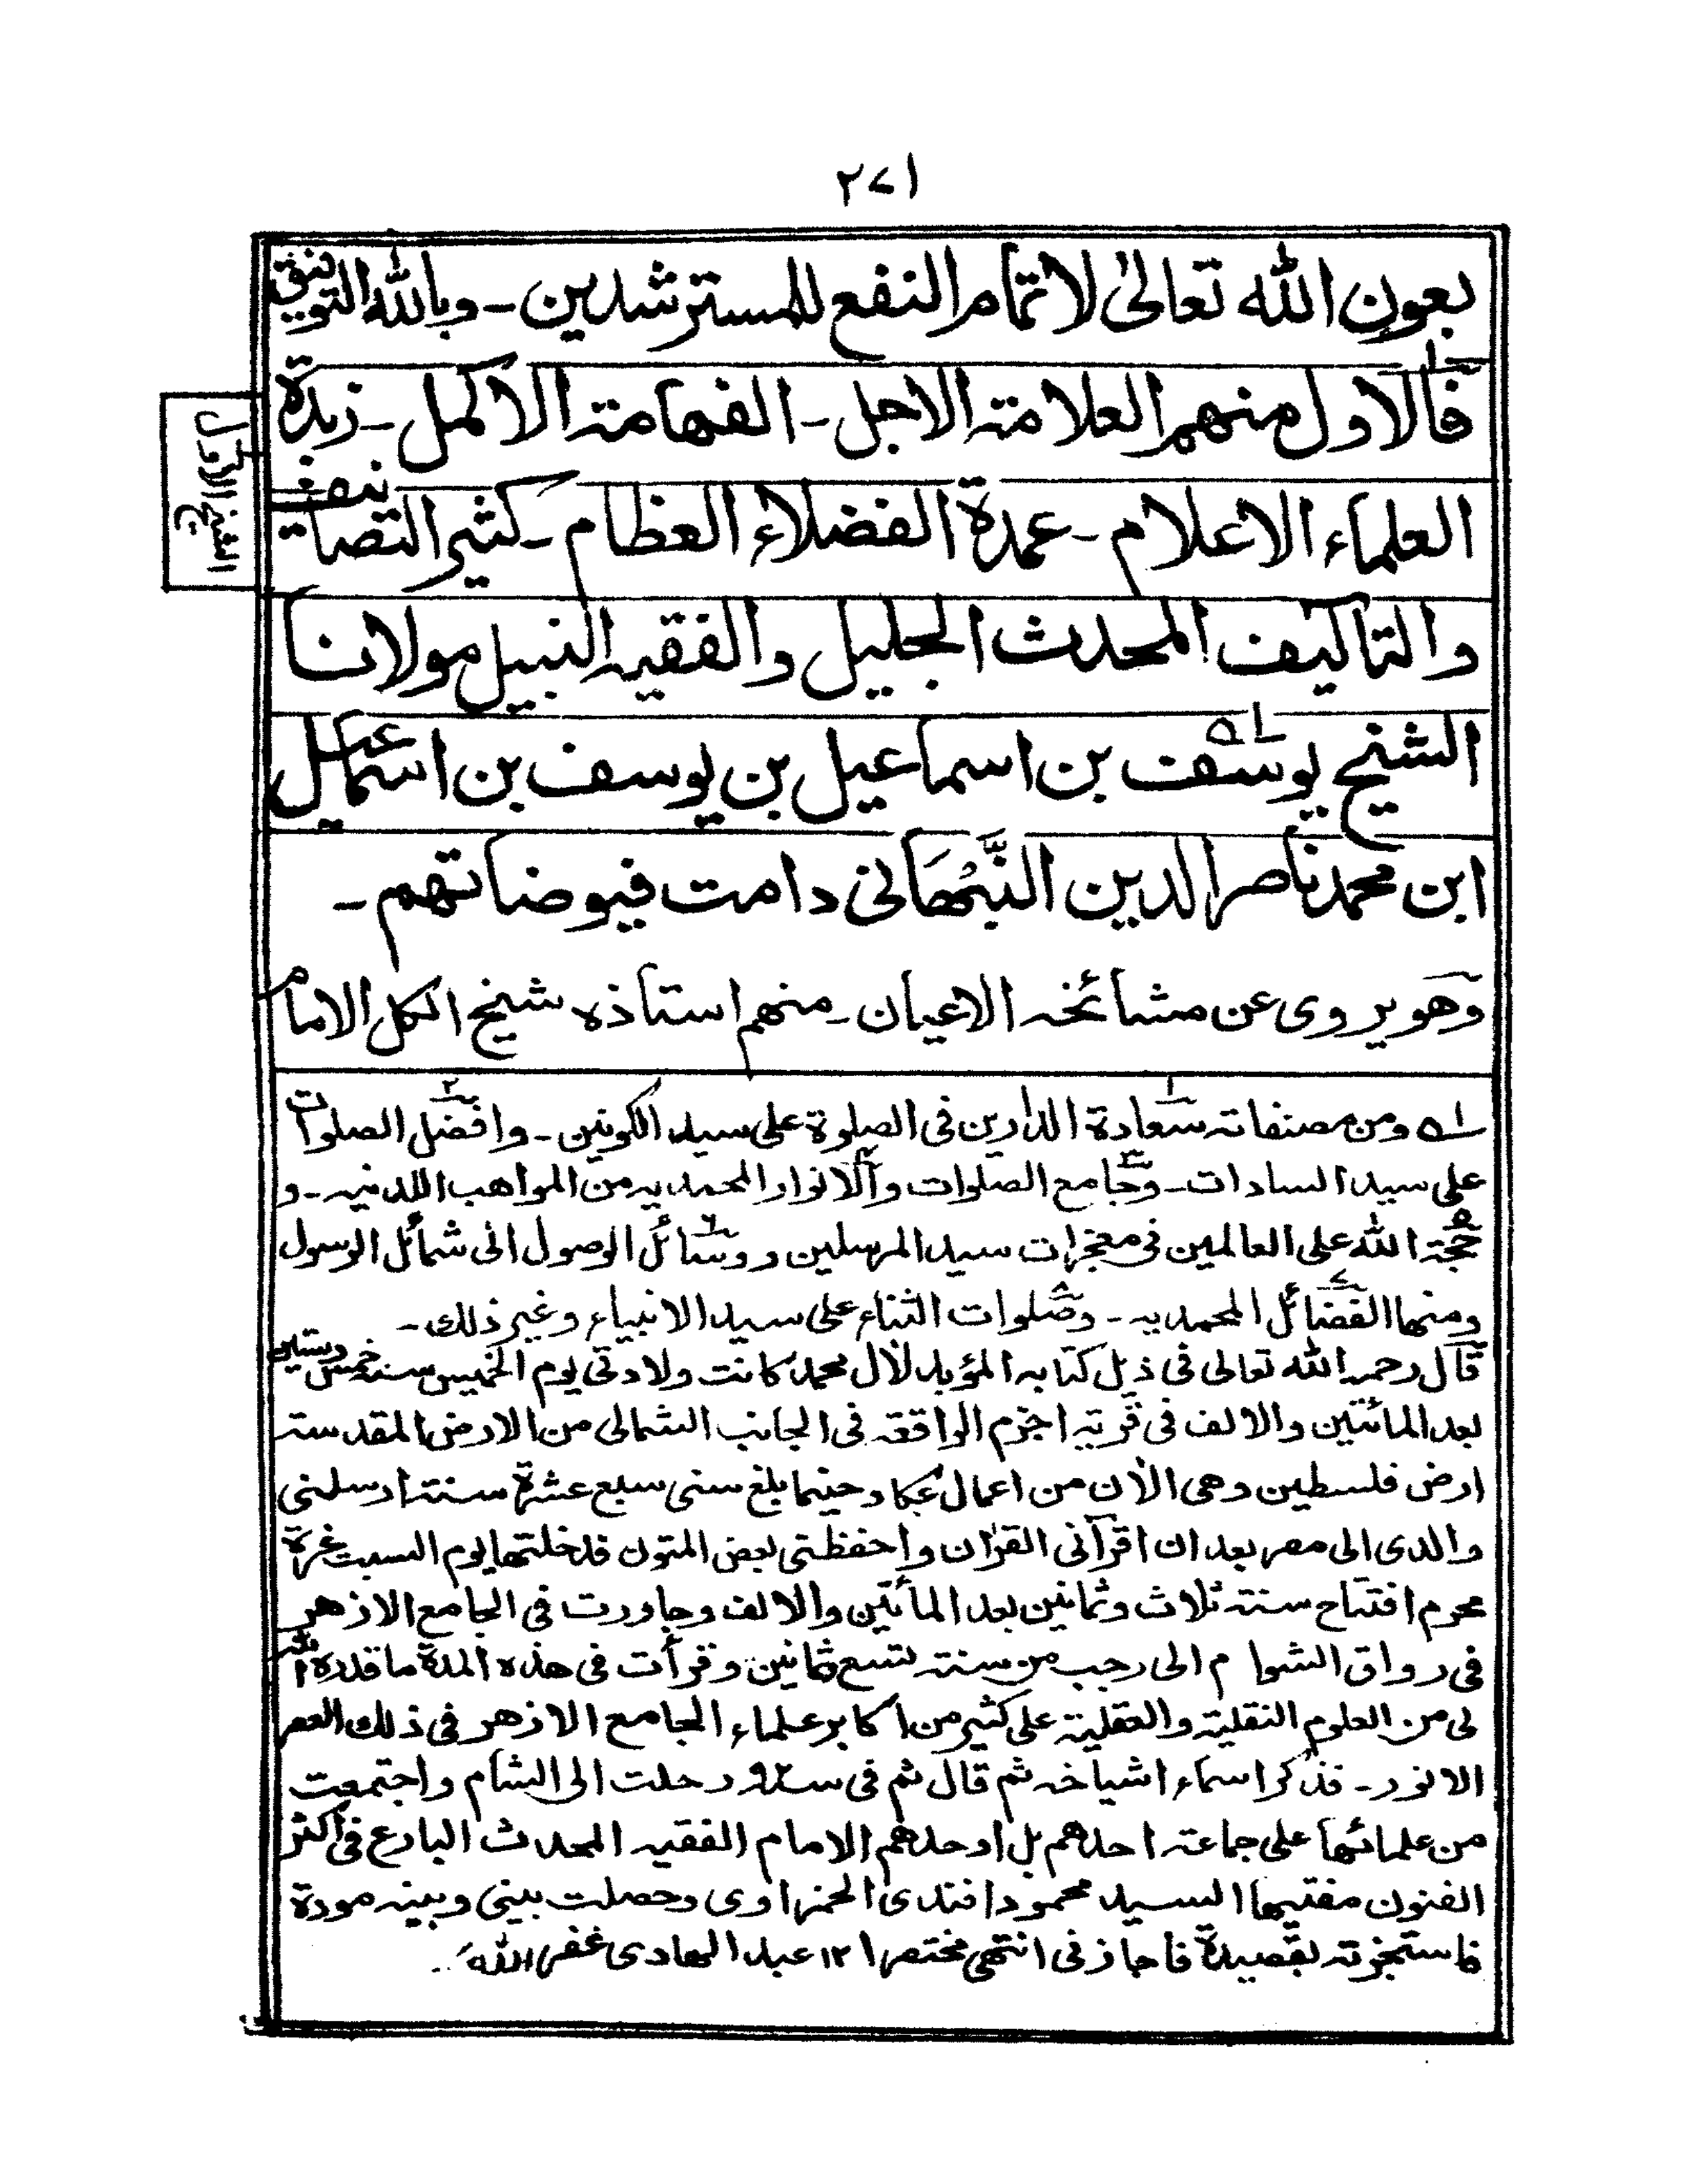 ٢٧١
بعون الله تعالىٰ لاتمام النفع للمسترشدين ـ وبالله التوفيق
فالاول منهم العلامة الاجل ـ الفهامة الاكمل ـ زبدة
الشيخ الاول
العلماء الاعلام ـ عمدة الفضلاء العظام ـ كثير التصانيف
والتاليف المحدث الجليل والفقيه النبيل مولانا
الشيخ يوسف بن اسماعيل بن يوسف بن اسماعيل
ابن محمد ناصر الدين النَّبْهَانى دامت فيوضاتهم ـ
وهو يروى عن مشائخه الاعيان ـ منهم استاذه شيخ الكل الامام
١ـه ومن مصنفاته سعادة الدارين فى الصلوة على سيد الكونين ـ وافضل الصلوات
على سيد السادات ـ وجامع الصلوات والانوار المحمديه من المواهب اللدنيه ـ و
حجة الله على العالمين فى معجزات سيد المرسلين ووسائل الوصول الى شمائل الرسول
ومنها الفضائل المحمديه ـ وصلوات الثناء على سيد الانبياء وغير ذلك ـ
قال رحمه الله تعالى فى ذيل كتابه المؤيد لأل محمد كانت ولادتى يوم الخميس سنة خمس وستين
بعد المائتين والالف فى قرية اجزم الواقعة فى الجانب الشمالى من الارض المقدسة
ارض فلسطين وهى الأن من اعمال عكا وحينما بلغ سنى سبع عشرة سنة ارسلنى
والدى الى مصر بعد ان اقرأنى القرأن واحفظنى بعض المتون فدخلتها يوم السبت غرة
محرم افتتاح سنة ثلاث وثمانين بعد المأتين والالف وجاورت فى الجامع الازهر
فى رواق الشوام الى رجب من سنة تسع ثمانين وقرأت فى هذه المدة ما قدره الله
لى من العلوم النقلية والعقلية على كثير من اكابر علماء الجامع الازهر فى ذلك العصر
الانور ـ فذكر اسماء اشياخه ثم قال ثم فى سـ٩٢ـه رحلت الى الشام واجتمعت
من علمائها على جماعة احدهم بل اوحدهم الامام الفقيه المحدث البارع فى اكثر
الفنون مفتيها السيد محمود افندى الحمزاوى وحصلت بينى وبينه مودة
فاستجزته بقصيدة فاجازنى انتهى مختصرا ١٢ عبد الهادى غفر الله له